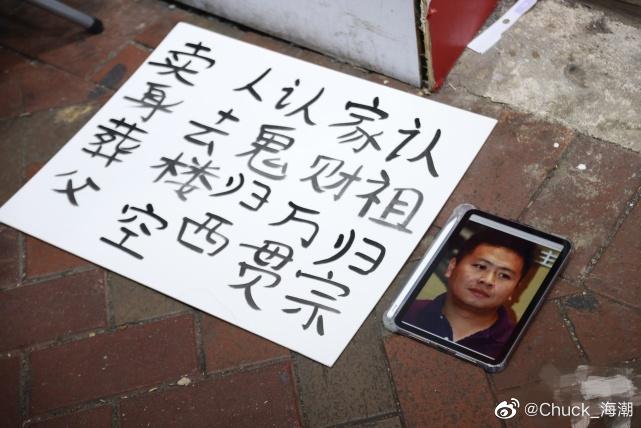 认祖归宗
家财万贯
认鬼归西
人去楼空
卖身葬父
主
@Chuck_海潮